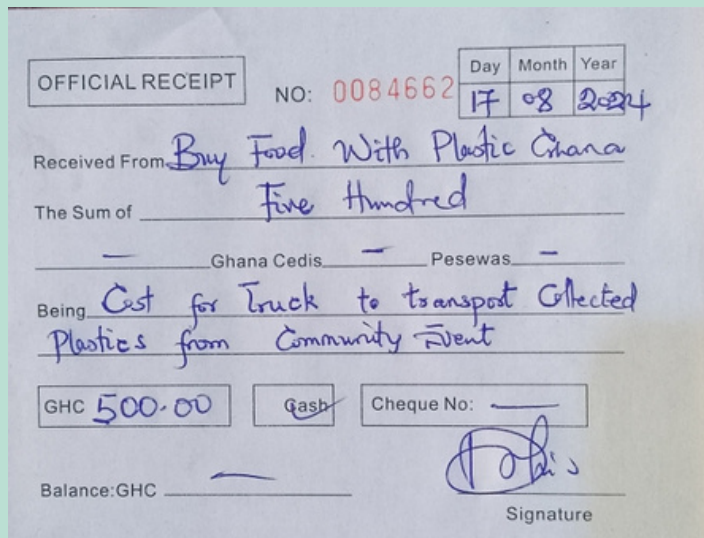 OFFICIAL RECEIPT NO: 0084662
Day Month Year
17 08 2024
Received From Buy Food With Plastic Ghana
The Sum of Five Hundred
— Ghana Cedis — Pesewas —
Being Cost for Truck to transport Collected
Plastics from Community Event
GHC 500.00 Cash Cheque No: —
Balance:GHC —
Signature